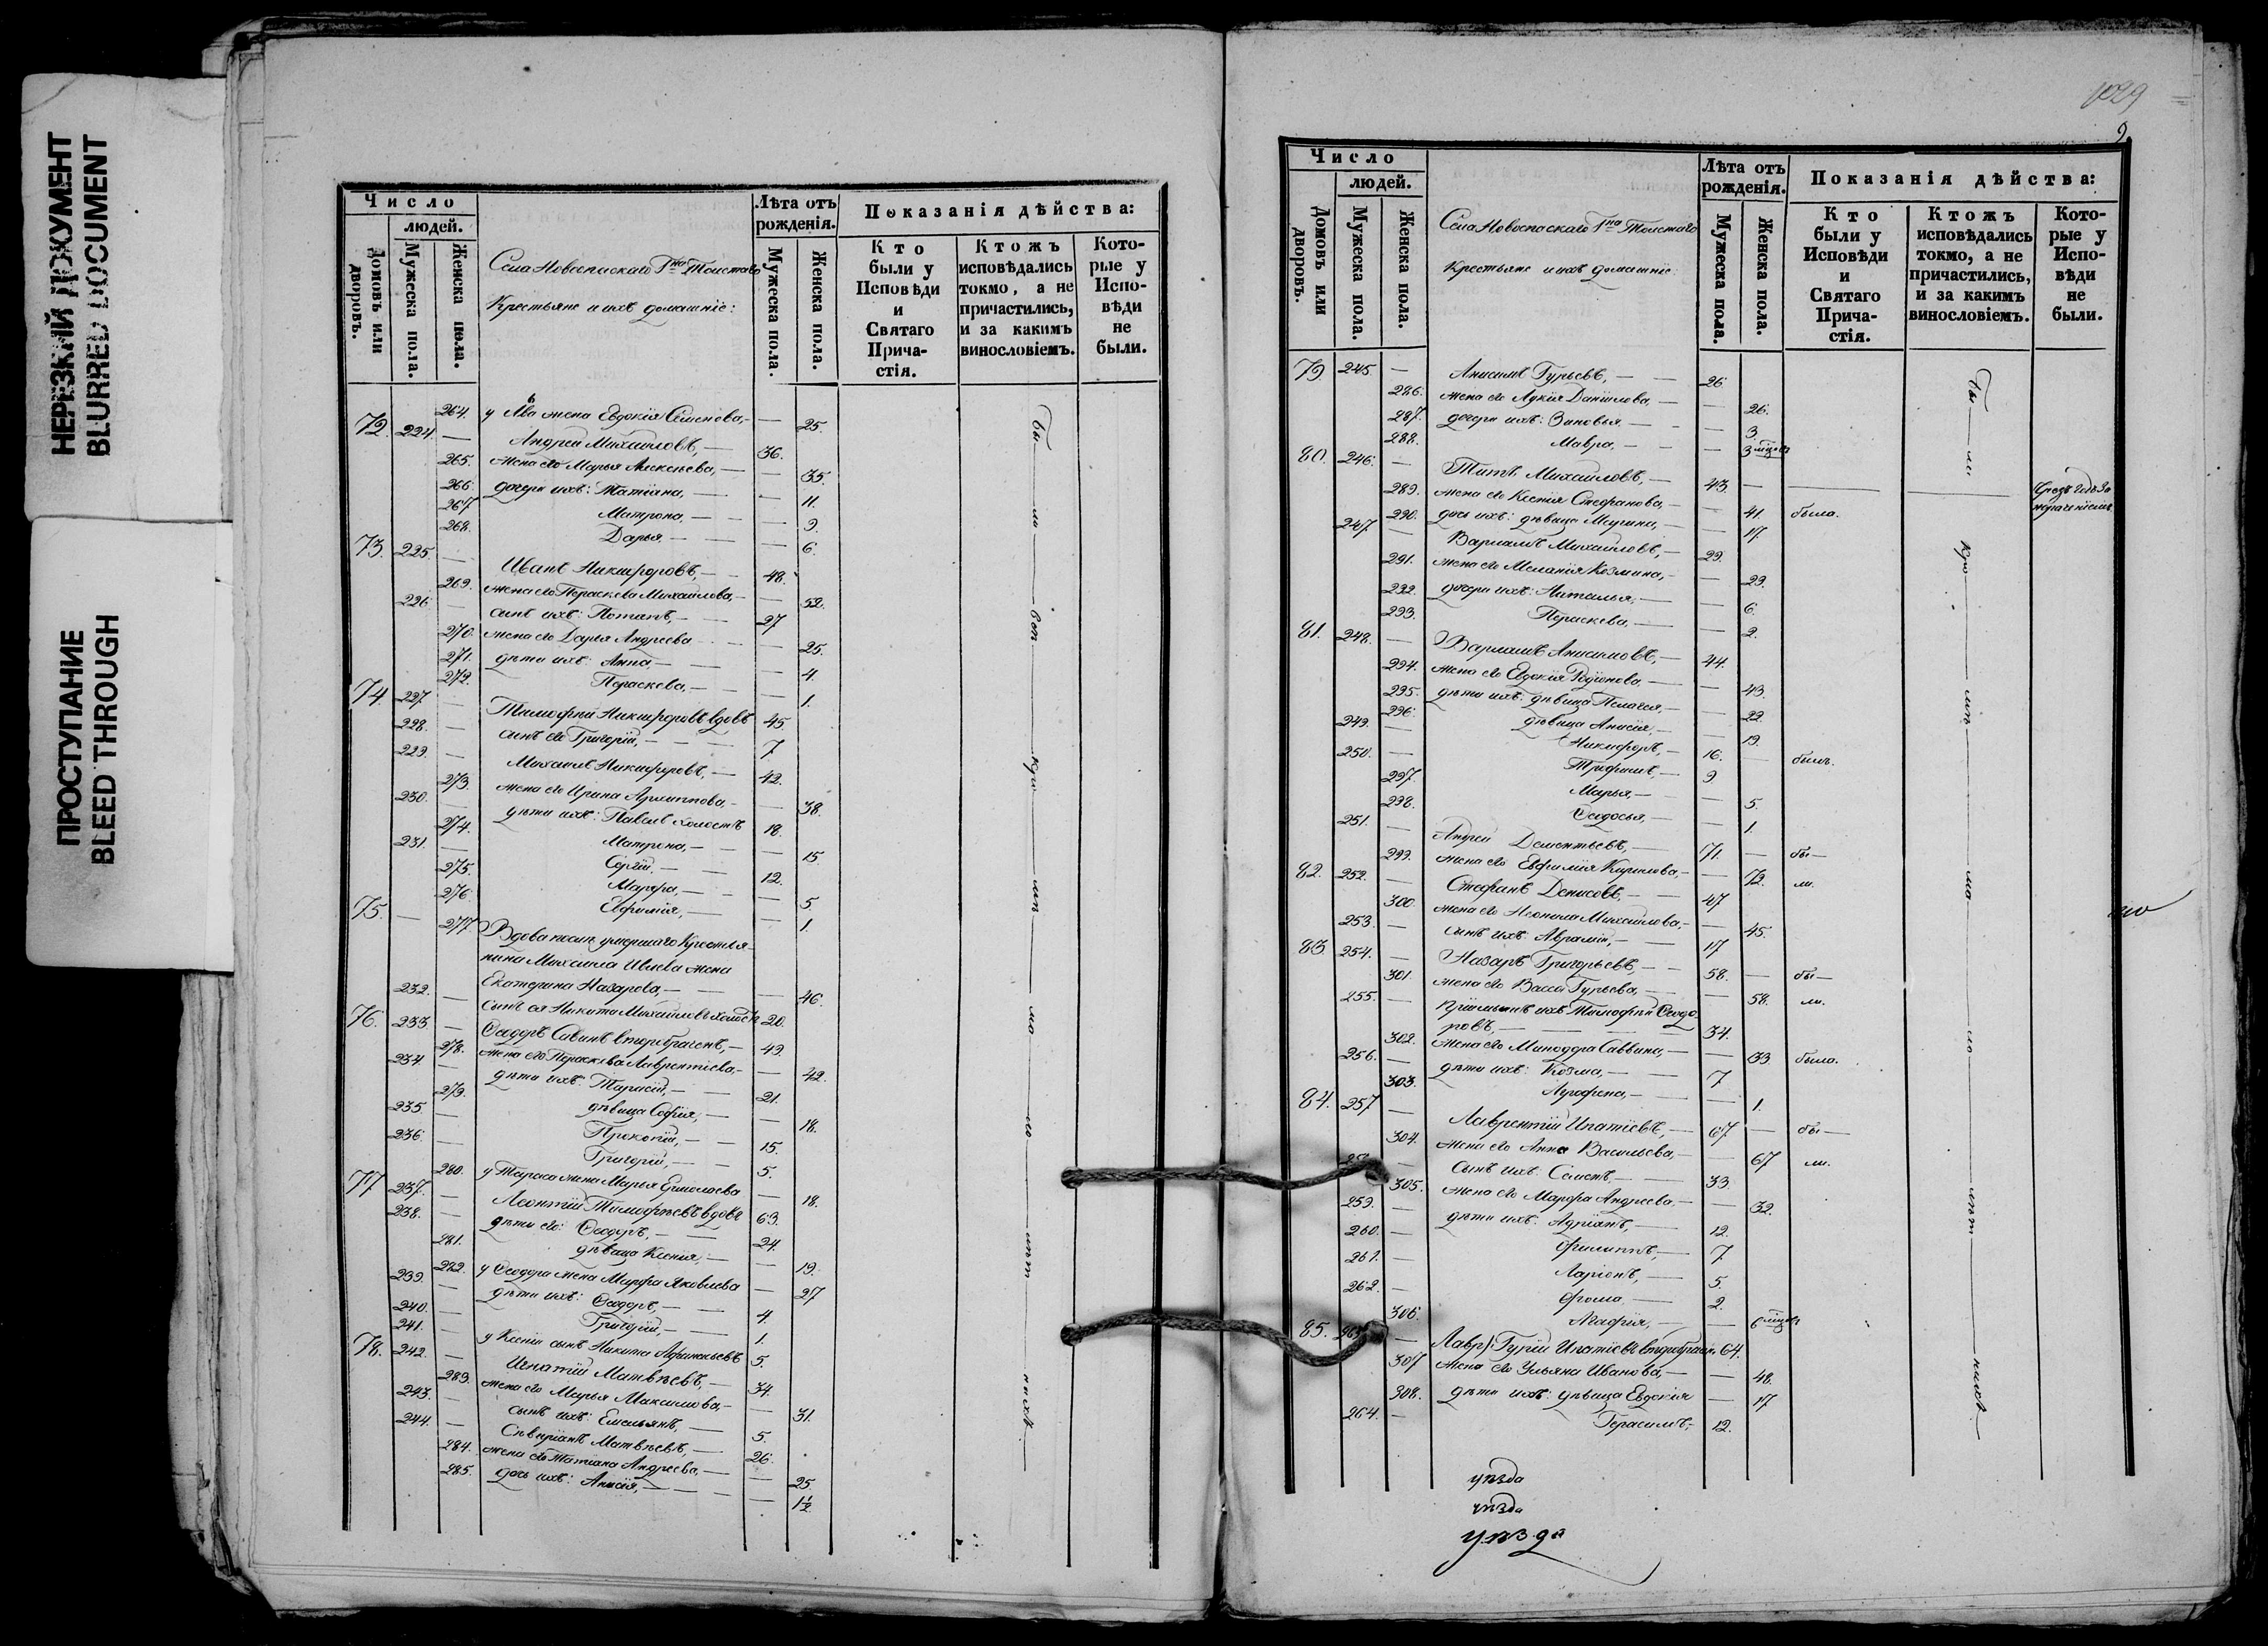 НЕРЕЗКИЙ ДОКУМЕНТ
BLURRED DOCUMENT
ПРОСТУПАНИЕ
BLEED THROUGH
Число
людей.
Домовъ или дворовъ.
Мужеска пола.
Женска пола.
Села Новоспаскаго Гна Толстаго
Крестьяне и ихъ домашніе:
Лѣта отъ рожденія.
Мужеска пола.
Женска пола.
Показанія дѣйства:
Кто были у Исповѣди и Святаго Причастія.
Ктожъ исповѣдались токмо, а не причастились, и за какимъ винословіемъ.
Которые у Исповѣди не были.
264. у Льва жена Евдокія Семенова, — 25.
72. 224. — Андрей Михайловъ, — 36.
265. жена его Марья Алексѣева, — 35.
266. дочери ихъ: Татіана, — 11.
267 Матрона, — 9.
268. Дарья. — 6.
73. 225. — Иванъ Никифоровъ, — 48.
269. жена его Параскева Михайлова, — 52.
226 — сынъ ихъ: Потапъ, — 27
270. жена его Дарья Андреева — 25.
271. дѣти ихъ: Анна, — 4.
272. Параскева, — 1.
74. 227 — Тимофей Никифоровъ вдовъ 45.
228. — сынъ его Григорій, — 7
229. — Михаилъ Никифоровъ, — 42.
273. жена его Ирина Архиппова, — 38.
230. — дѣти ихъ: Павелъ холостъ 18.
274. Матрена, — 15.
231. — Сергій, — 12.
275. Марфа, — 5
276. Евфимія, — 1.
75. — 277 Вдова послѣ умершаго Крестья
нина Михаила Ивлева жена
Екатерина Назарова, — 46.
232. — Сынъ ея Никита Михайловъ холостъ 20.
76. 233. — Ѳеодоръ Савинъ второбраченъ, — 49.
278. жена его Параскева Лаврентіева, — 42.
234 — дѣти ихъ: Тарасій, — 21.
279. дѣвица Софія, — 18.
235. — Прокопій, — 15.
236. — Григорій, — 5.
280. у Тараса жена Марья Ермолаева — 18.
77 237. — Леонтій Тимофѣевъ вдовъ 63.
238. — дѣти его: Ѳеодоръ, — 24.
281. дѣвица Ксенія, — 19.
282. у Ѳеодора жена Марфа Яковлева — 27
239. — дѣти ихъ: Ѳеодоръ, — 4.
240. — Григорій, — 1.
241. — у Ксеніи сынъ Никита Афанасьевъ 5.
78. 242. — Игнатій Матвѣевъ, — 34.
283. жена его Марья Максимова, — 31.
243. — сынъ ихъ: Емельянъ, — 5.
244. — Севиріянъ Матвѣевъ, — 26.
284. жена его Татіана Андреева, — 25.
285. дочь ихъ: Анисія, — 1½
1029
9.
Число
людей.
Домовъ или дворовъ.
Мужеска пола.
Женска пола.
Села Новоспаскаго Гна Толстаго
Крестьяне и ихъ домашніе
Лѣта отъ рожденія.
Мужеска пола.
Женска пола.
Показанія дѣйства:
Кто были у Исповѣди и Святаго Причастія.
Ктожъ исповѣдались токмо, а не причастились, и за какимъ винословіемъ.
Которые у Исповѣди не были.
79. 245. — Анисимъ Гурьевъ, — 26.
286. жена его Лукія Данилова, — 26.
287. дочери ихъ: Зиновья — 3.
288. Мавра, — 3 мѣсяц
80. 246. — Титъ Михайловъ, — 43. —
289. жена его Ксенія Стефанова, — 41. была.
290. дочь ихъ: дѣвица — 17.
247 — Варламъ Михайловъ, — 29.
291. жена его Меланія Козмина, — 29.
292. дочери ихъ: Наталья, — 6.
293. Параскева, — 2.
81. 248. — Варламъ Анисимовъ, — 44.
294. жена его Евдокія Родіонова — 43.
295. дѣти ихъ: дѣвица Пелагея, — 22.
296. дѣвица Анисія, — 19.
249. — Никифоръ, — 16. — былъ.
250. — Трифилъ, — 9
297. Марья, — 5.
298. Ѳедосья, — 1.
251. — Андрей Дементьевъ, — 71. — бы—
299. жена его Евфимія Кирилова, — 72. ли.
82. 252. — Стефанъ Денисовъ, — 47
300. жена его Неонила Михайлова, — 45.
253. — сынъ ихъ: Аврамій, — 17
83. 254. — Назаръ Григорьевъ, — 58. — бы—
301. жена его Васса Гурьева, — 58. ли.
255. — пріимышъ ихъ Тимофей Ѳеодо
ровъ, — 34.
302. жена его Минодора Саввина, — 33 была.
256. — дѣти ихъ: Козма, — 7
303. Агрофена, — 1.
84. 257 — Лаврентій Ипатіевъ, — 67. — бы—
304. жена его Анна Васильева, — 67 ли.
— сынъ ихъ: Семенъ, — 33.
305. жена его Марфа Андреева — 32.
259. — дѣти ихъ: Адріанъ, — 12.
260. — Филиппъ, — 7.
261. — Ларіонъ, — 5.
262. — Фома — 2.
306. Агафія, — 6 мѣсяц
85. — Гурій Ипатіевъ второбрачн. 64.
307 жена его Ульяна Иванова, — 48.
308. дѣти ихъ: дѣвица Евдокія — 17
264. — Герасимъ, 12.
уѣзда
уѣзда
уѣзда